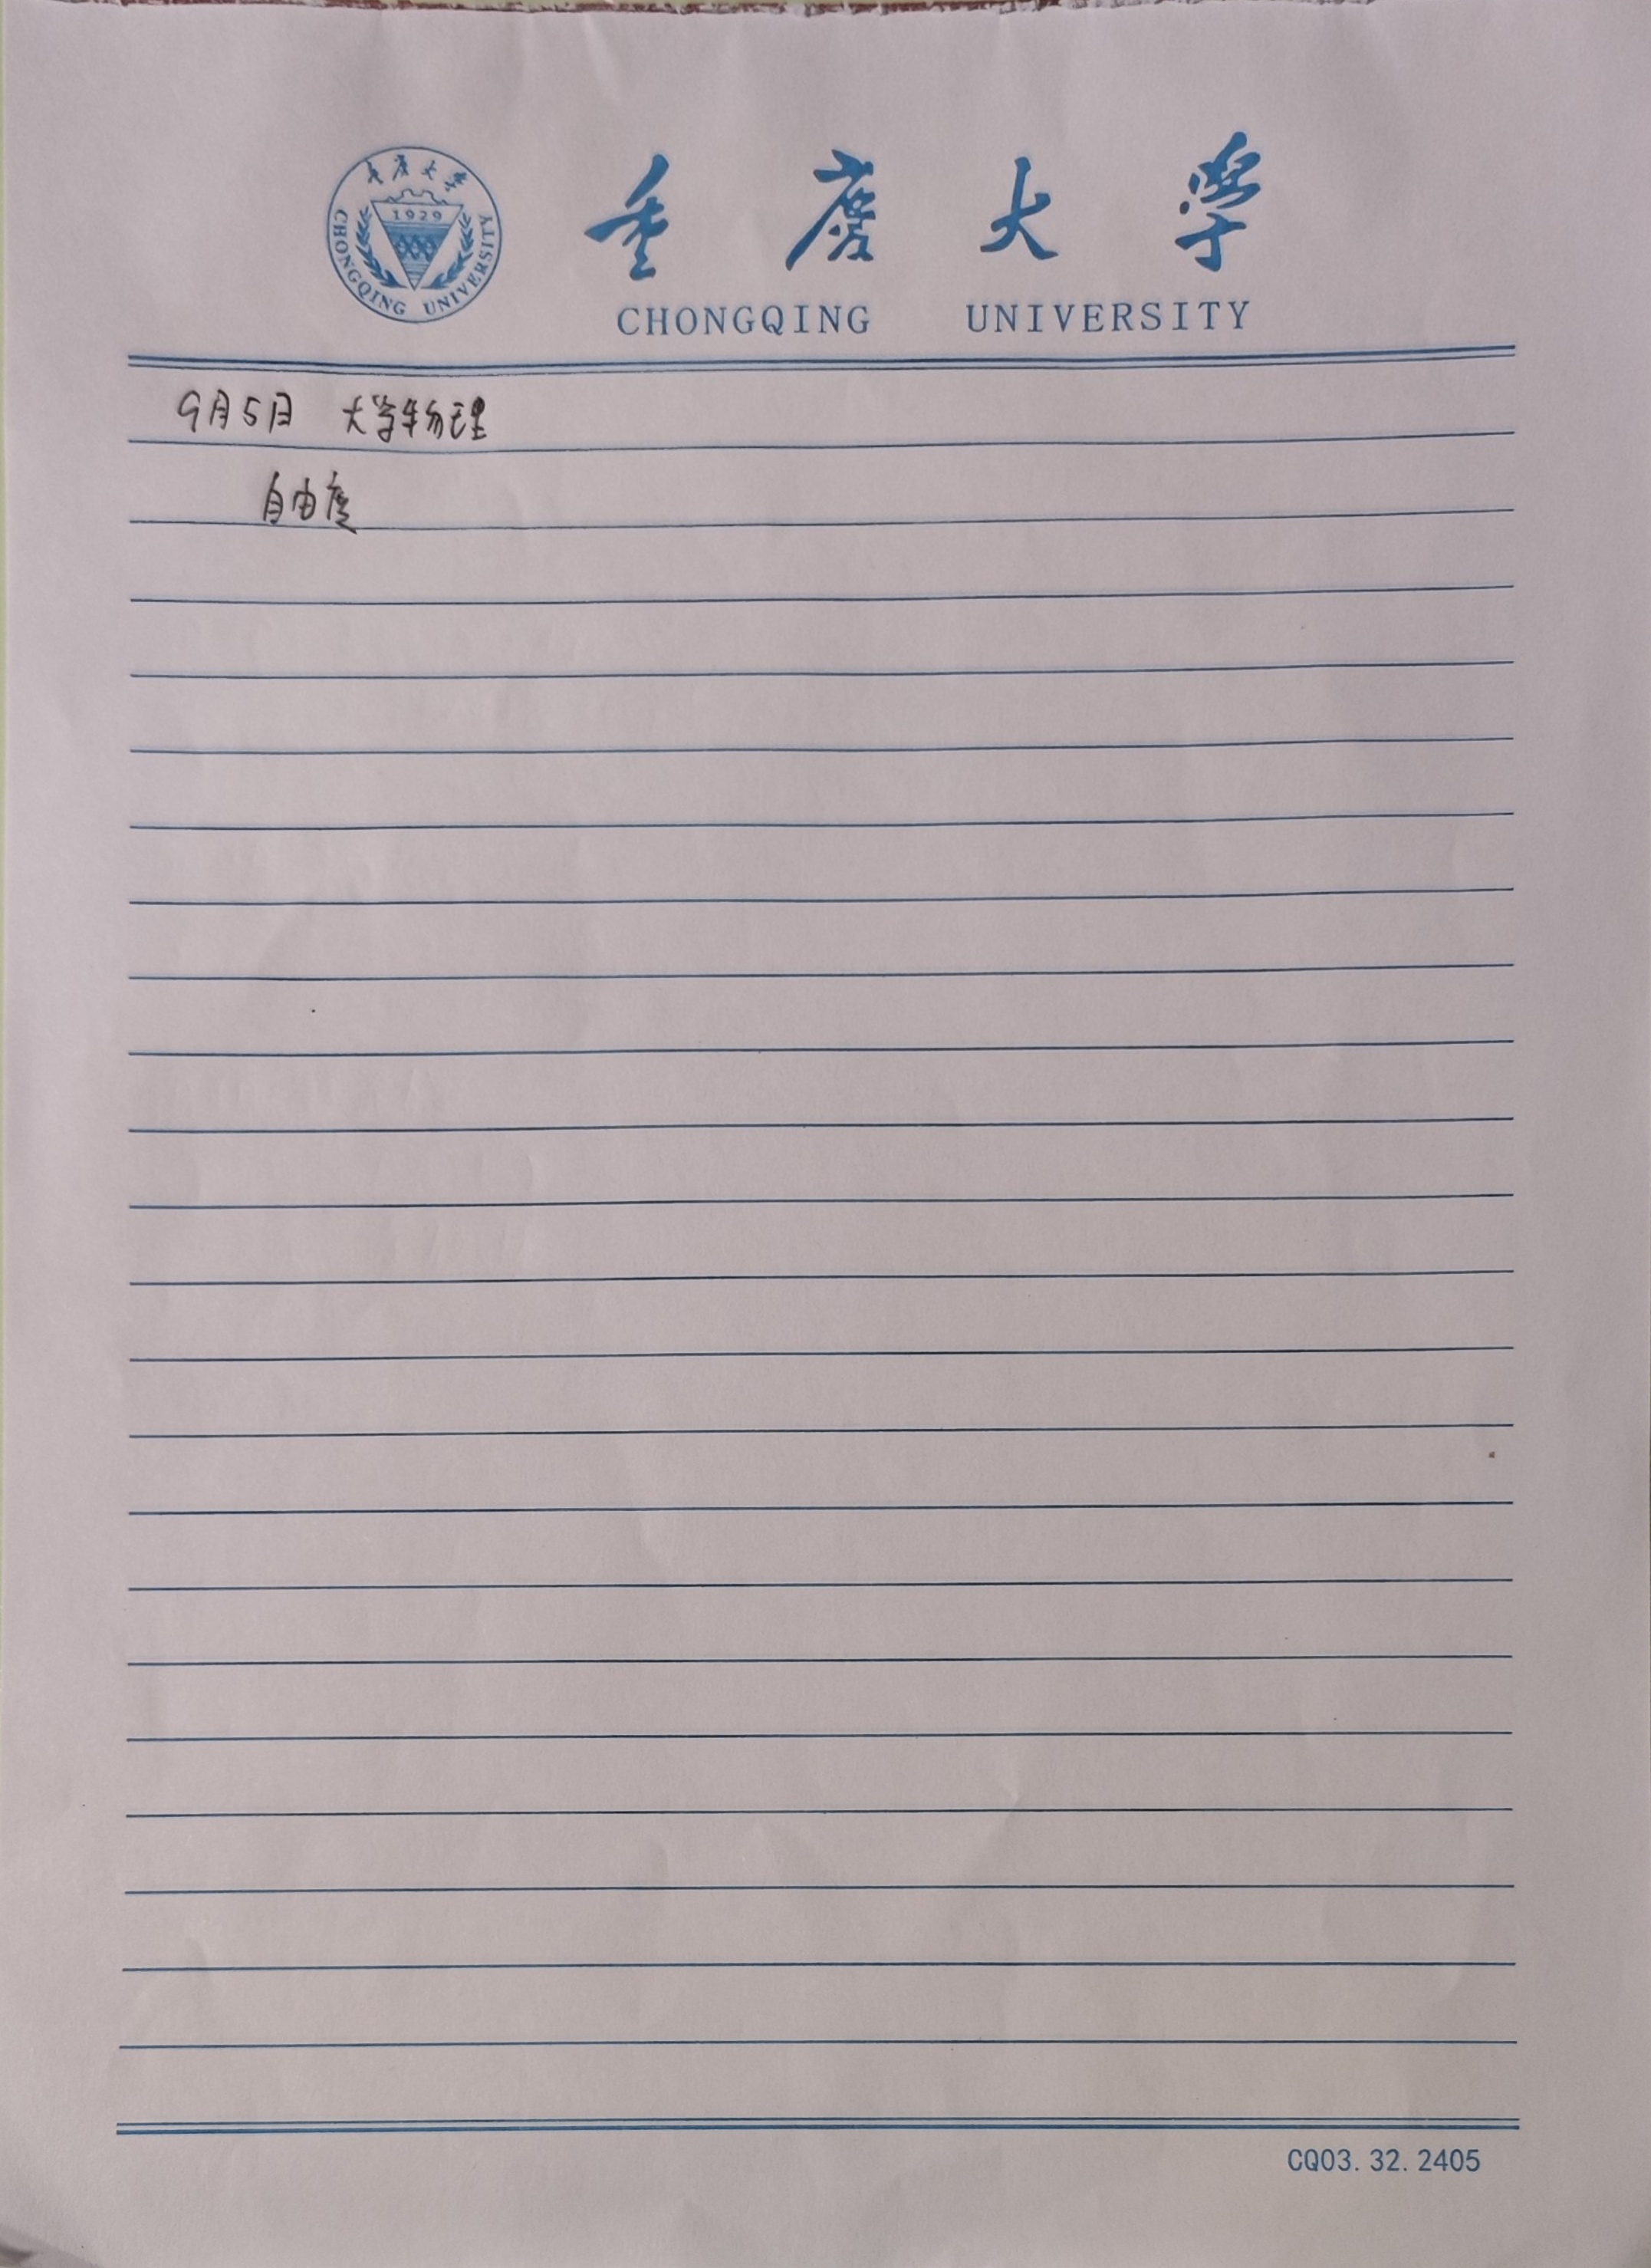 重庆大学
1929
CHONGQING UNIVERSITY
重庆大学
CHONGQING UNIVERSITY
9月5日 大学物理
自由度
CQ03.32.2405